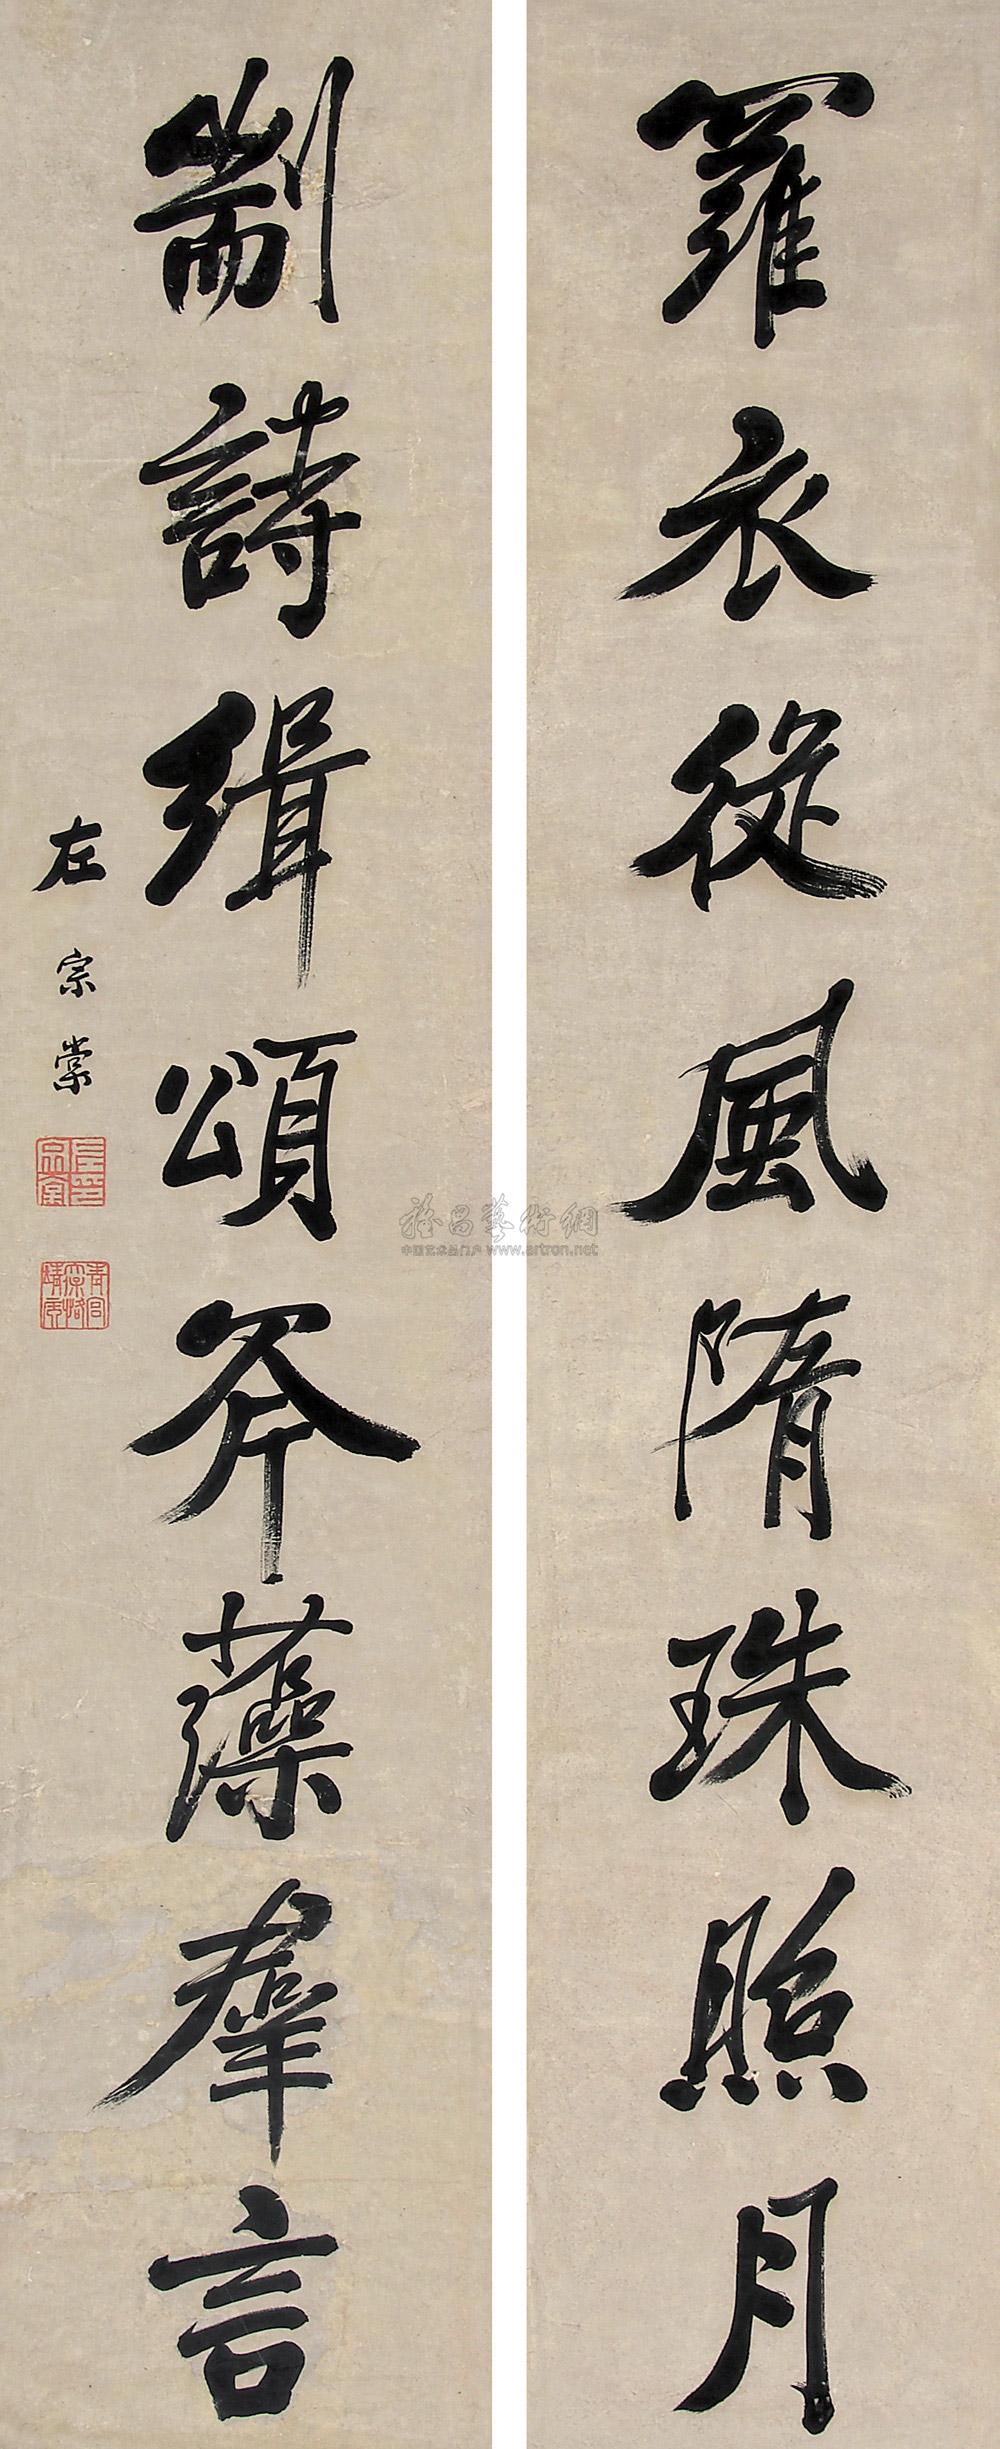 羅衣從風隋珠照月
制詩緝頌斧藻羣言
左宗棠
雅昌藝術網
中国艺术品门户 www.artron.net